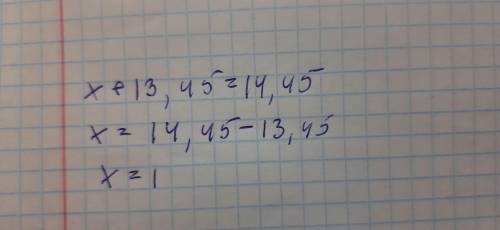 x + 13,45 = 14,45
x = 14,45 - 13,45
x = 1